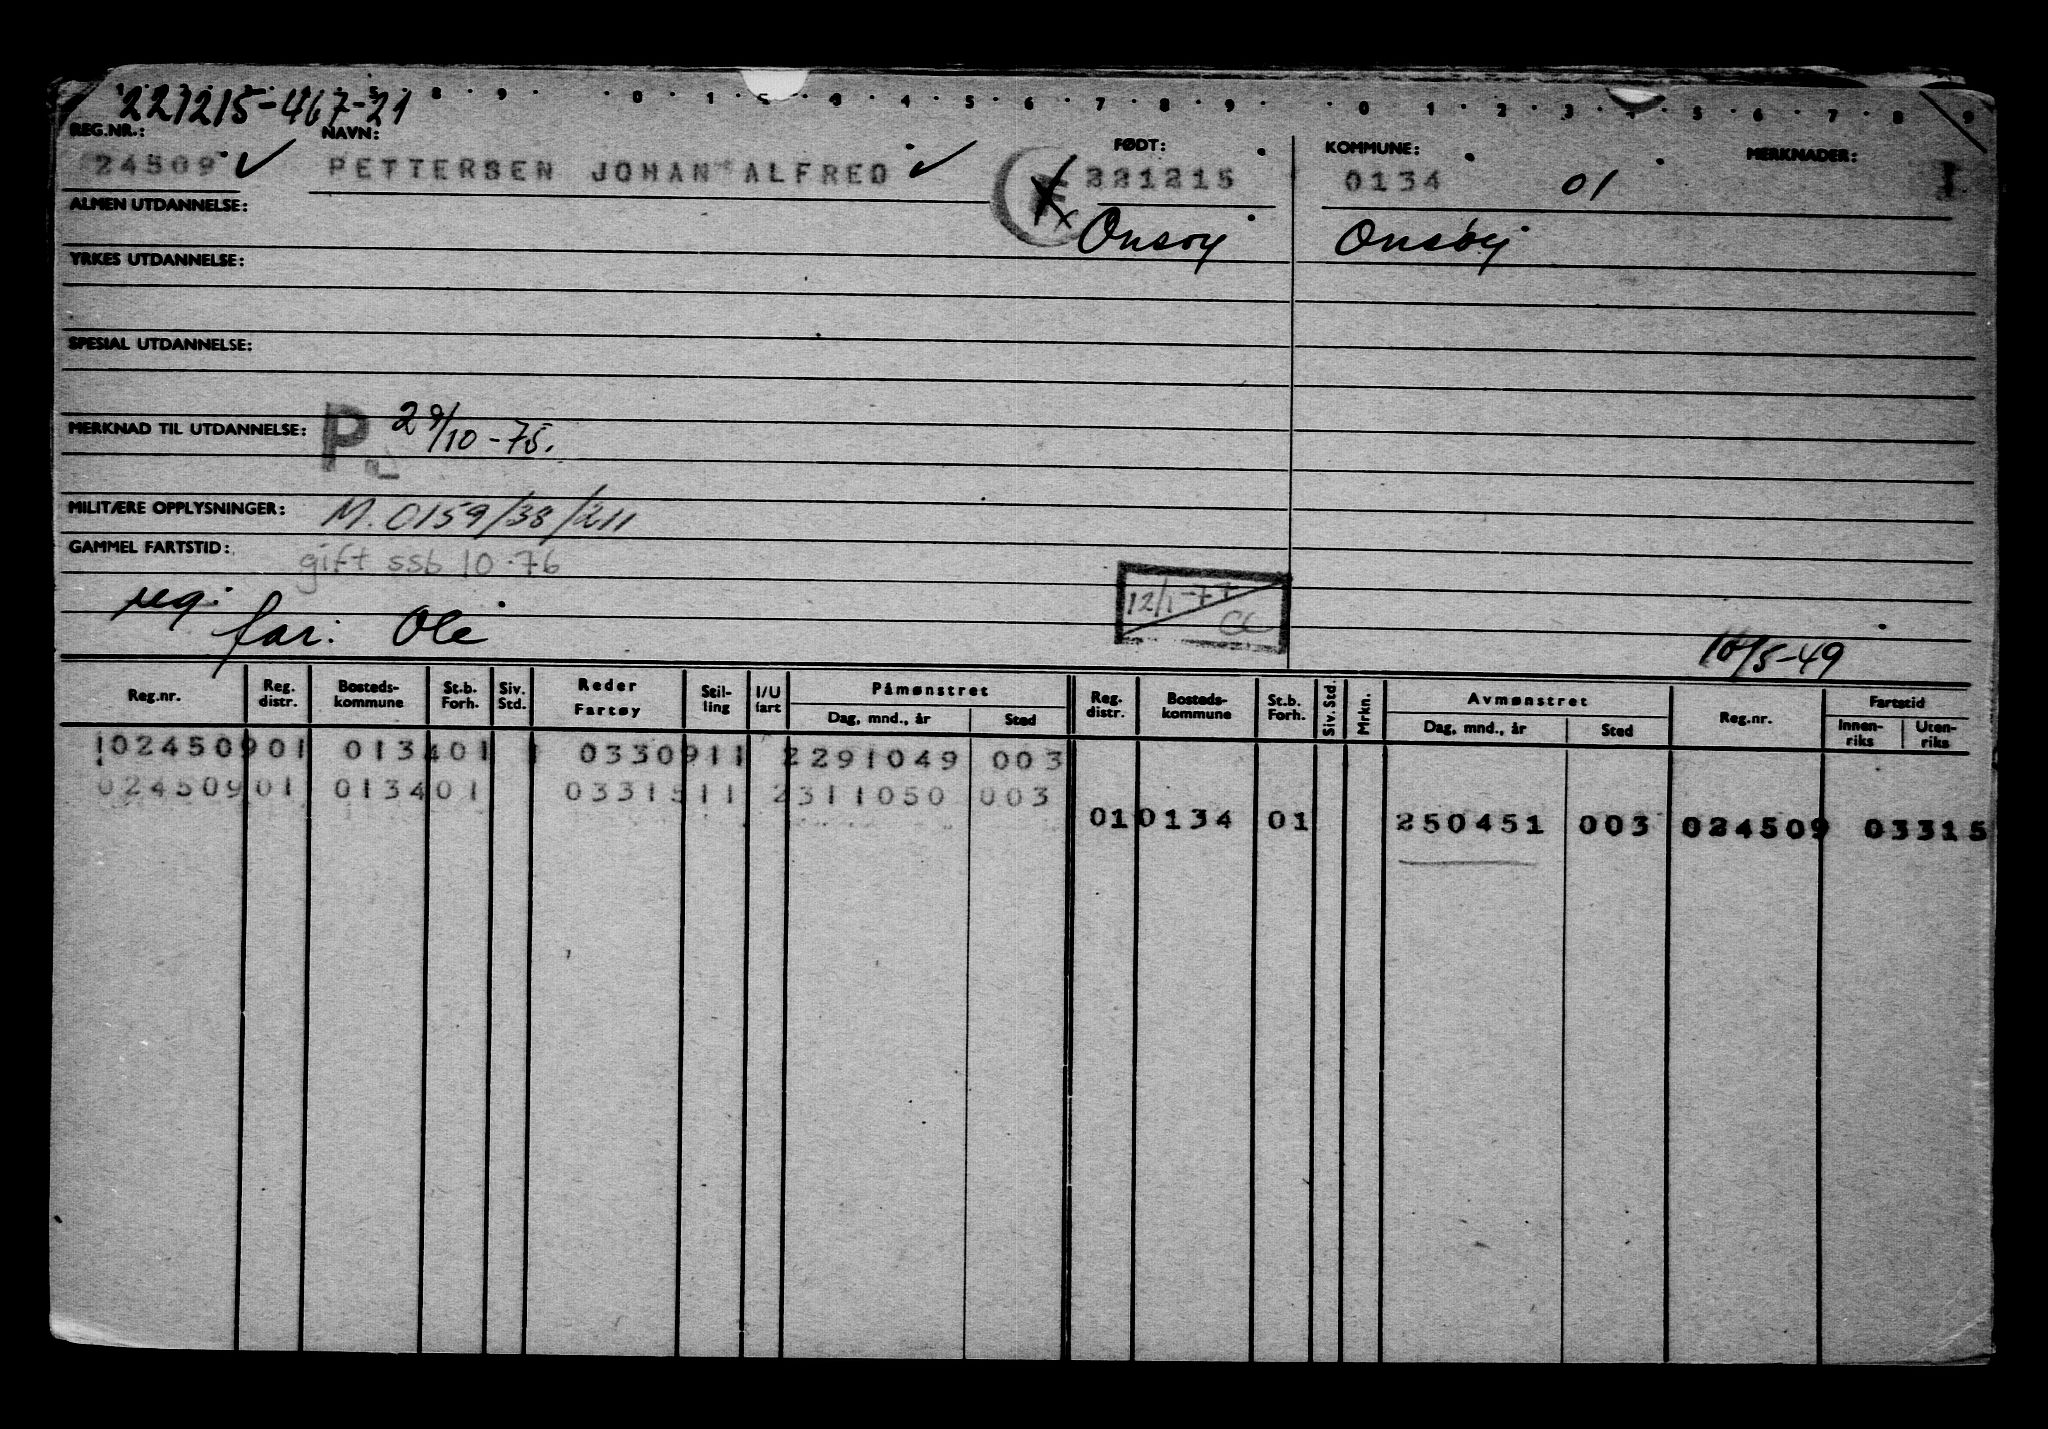 221215-467-21
REG.NR.: NAVN: FØDT: KOMMUNE: MERKNADER:
24509 PETTERSEN JOHAN ALFRED 221215 0134 01
Onsøy Onsøy
ALMEN UTDANNELSE:
YRKES UTDANNELSE:
SPESIAL UTDANNELSE:
MERKNAD TIL UTDANNELSE: P 29/10-75.
MILITÆRE OPPLYSNINGER: M. 0159/38/211
GAMMEL FARTSTID: gift ssb 10-76
12/1-77
CC
reg.
far: Ole
10/5-49
Reg.nr. Reg. distr. Bosteds-kommune St.b. Forh. Siv. Std. Reder Fartøy Stil-ling I/U fart Påmønstret Dag, mnd., år Sted Reg. distr. Bosteds-kommune St.b. Forh. Siv. Std. Mrkn. Avmønstret Dag, mnd., år Sted Reg.nr. Fartstid Innen-riks Uten-riks
102450901 013401 1 0330911 2291049 003
02450901 013401 0331511 2311050 003
010134 01 250451 003 024509 03315